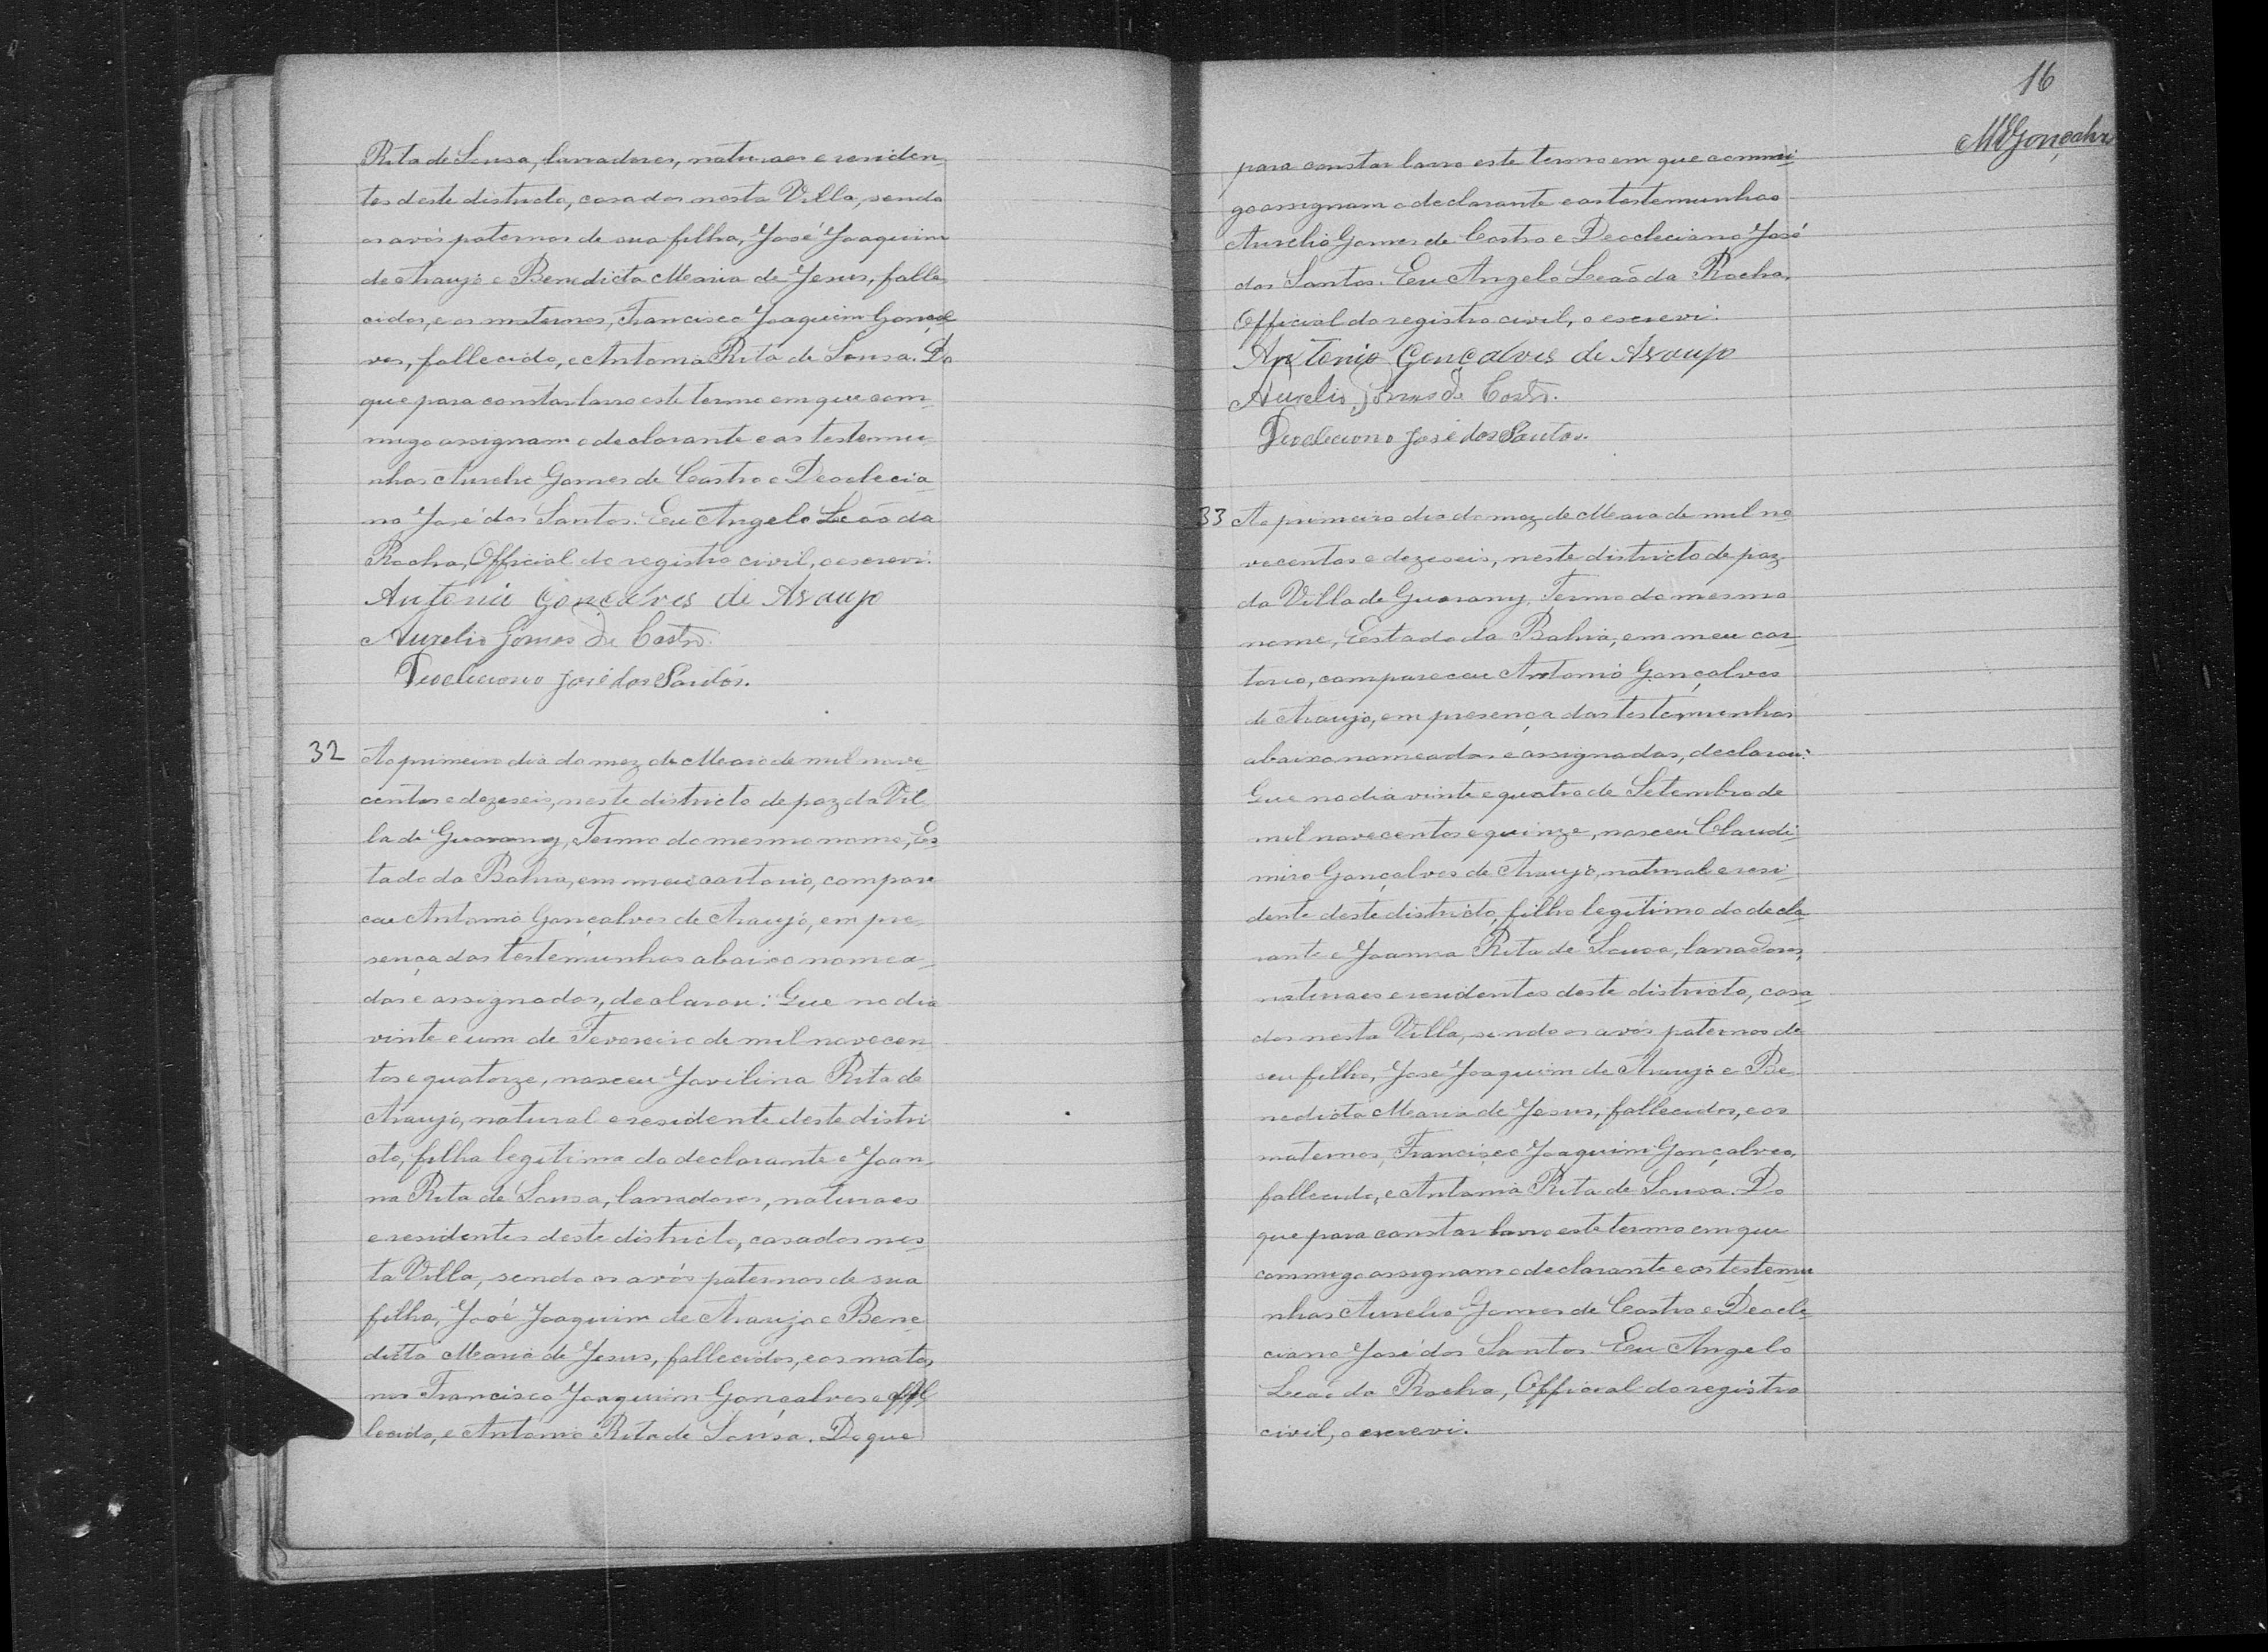 Rita de Sousa, lavradores, naturaes e residen-
tes deste districto, casados nesta Villa, sendo
os avós paternos de sua filha, José Joaquim
de Araujo e Benedicta Maria de Jesus, falle-
cidos, e os maternos, Francisco Joaquim Gonçal-
ves, fallecido, e Antonia Rita de Sousa. Do
que para constar lavro este termo em que com-
migo assignam o declarante e as testemu-
nhas Aurelio Gomes de Castro e Deoclecia-
no José dos Santos. Eu Angelo Leaõ da
Rocha, Official do registro civil, o escrevi.
Antonio Gonçalves de Araujo
Aurelio Gomes de Castro.
Deocleciono José dos Santos.
32 Ao primeiro dia do mez de Maio de mil nove-
centos e dezeseis, neste districto de paz da Vil-
la de Guarany, Termo do mesmo nome, Es-
tado da Bahia, em meu cartorio, compare-
ceu Antonio Gonçalves de Araujo, em pre-
sença das testemunhas abaixo nomea-
das e assignadas, declarou: Que no dia
vinte e um de Fevereiro de mil novecen-
tos e quatorze, nasceu Jovilina Rita de
Araujo, natural e residente deste distri-
cto, filha legitima do declarante e Joan-
na Rita de Sousa, lavradores, naturaes
e residentes deste districto, casados nes-
ta Villa, sendo os avós paternos de sua
filha, José Joaquim de Araujo e Bene-
dicta Maria de Jesus, fallecidos, e os mater-
nos Francisco Joaquim Gonçalves fal-
lecido, e Antonia Rita de Sousa. Do que
16
MVGonçalves
para constar lavro este termo em que commi-
go assignam o declarante e as testemunhas
Aurelio Gomes de Castro e Deocleciano José
dos Santos. Eu Angelo Leaõ da Rocha,
Official do registro civil, o escrevi.
Antonio Gonçalves de Araujo
Aurelio Gomes de Castro.
Deocleciono José dos Santos.
33 Ao primeiro dia do mez de Maio de mil no-
vecentos e dezeseis, neste districto de paz
da Villa de Guarany, Termo do mesmo
nome, Estado da Bahia, em meu car-
torio, compareceu Antonio Gonçalves
de Araujo, em presença das testemunhas
abaixo nomeadas e assignadas, declarou:
Que no dia vinte e quatro de Setembro de
mil novecentos e quinze, nasceu Claudi-
miro Gonçalves de Araujo, natural e resi-
dente deste districto, filho legitimo do decla-
rante e Joanna Rita de Sousa, lavradores,
naturaes e residentes deste districto, casa-
dos nesta Villa, sendo os avós paternos de
seu filho, José Joaquim de Araujo e Be-
nedicta Maria de Jesus, fallecidos, e os
maternos, Francisco Joaquim Gonçalves,
fallecido, e Antonia Rita de Sousa. Do
que para constar lavro este termo em que
commigo assignam o declarante e as testemu-
nhas Aurelio Gomes de Castro e Deocle-
ciano José dos Santos. Eu Angelo
Leaõ da Rocha, Official do registro
civil, o escrevi.